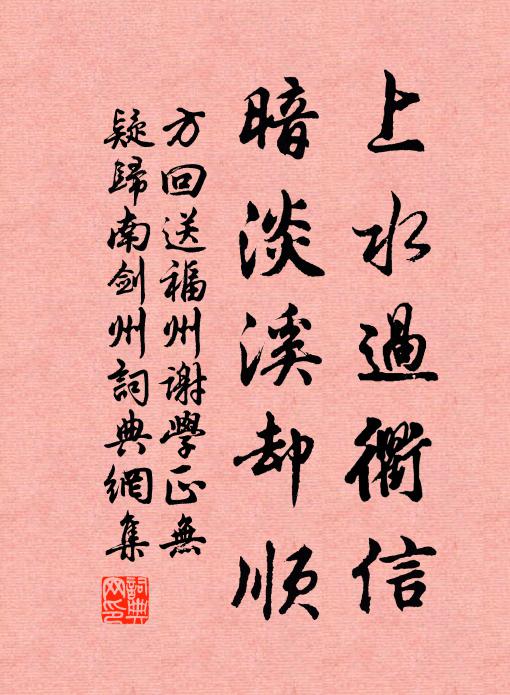 上水過衢信
暗淡溪却順
方回送福州谢學正無
疑歸南剑州詞典網集
詞典
网印